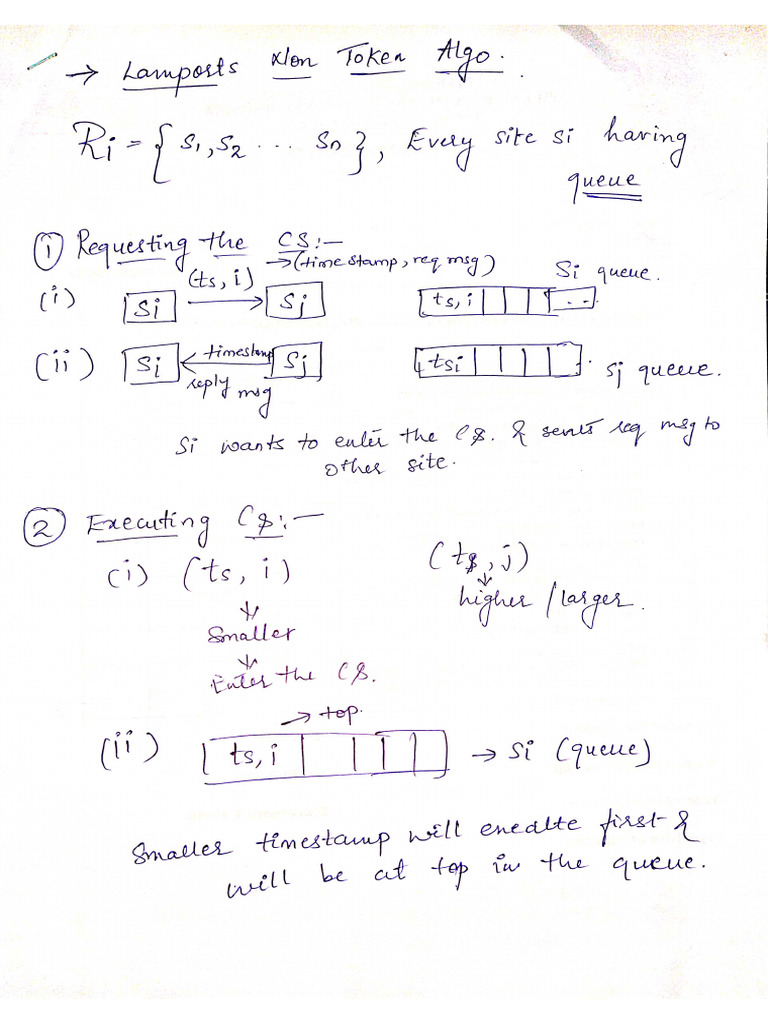 → Lamports Non Token Algo.
Ri = { S1, S2 ... Sn }, Every site si having
queue
① Requesting the CS:-
→ (timestamp, req msg)
(i) Si (ts, i) → Sj ts, i .. Si queue.
(ii) Si ← timestamp reply msg Sj tsi Sj queue.
Si wants to enter the CS. & sents req msg to
other site.
② Executing CS:-
(i) (ts, i) (ts, j)
↓ ↓
Smaller higher / larger.
↓
Enter the CS.
→ top.
(ii) ts, i → Si (queue)
Smaller timestamp will first &
will be at top in the queue.